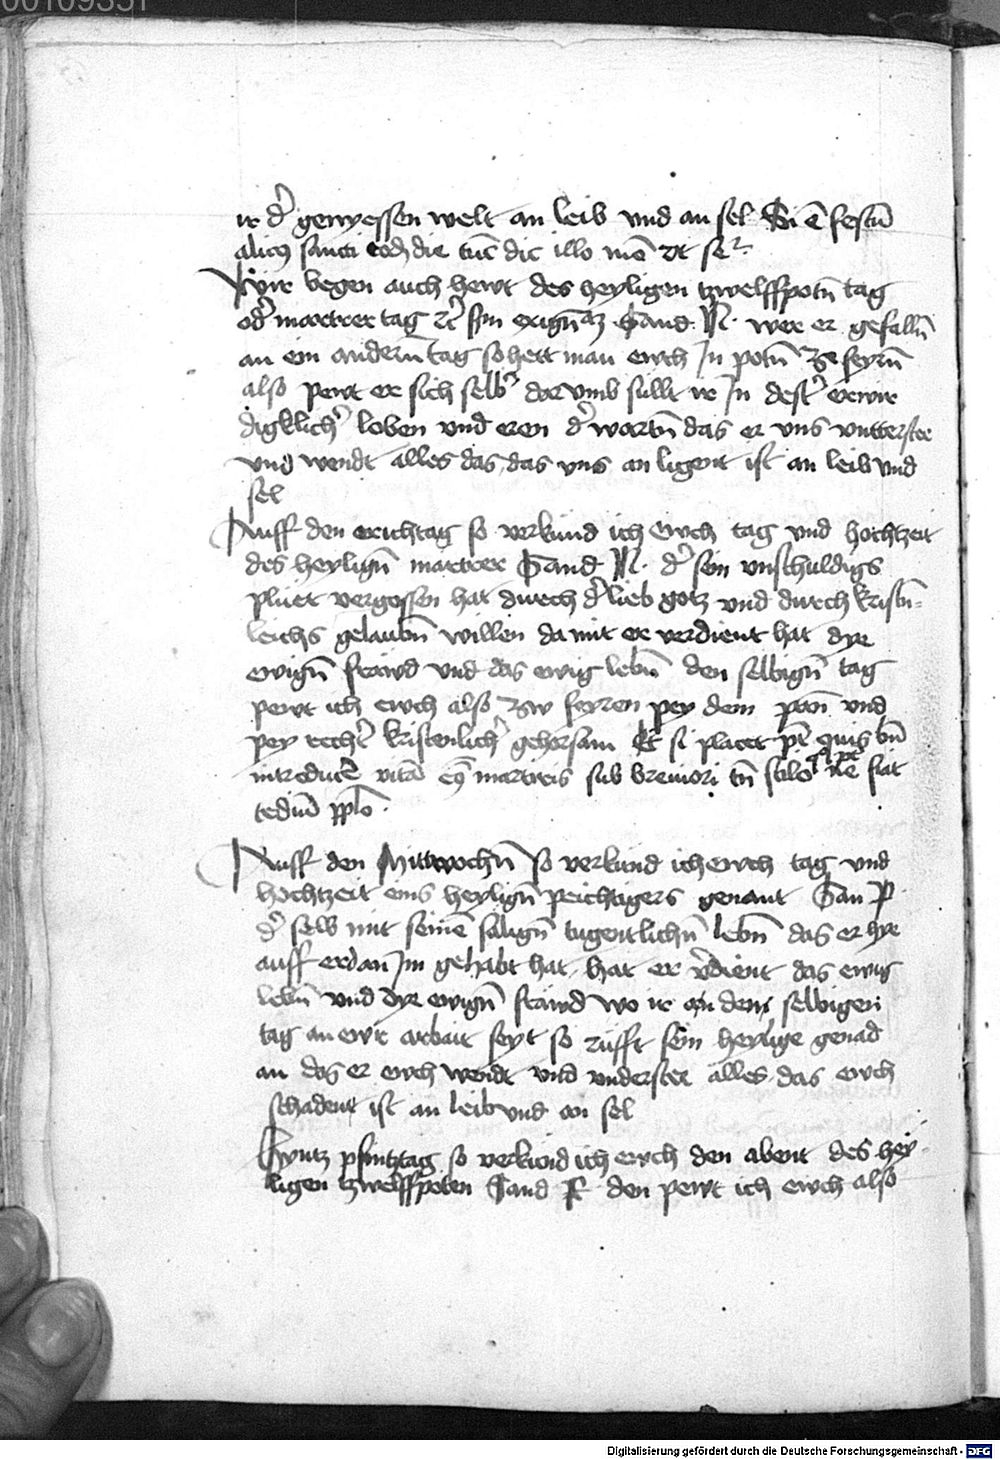 00109351
ir d' genyessen welt an leib und an sel Si ē festū
alicꝰ sancti eodē die tūc dic illo mō
Wir begen auch hewt des heyligen tzwelffpotn̄ tag
od' martrer tag Sand N. wer er gefalln̄
an ein andern̄ tag so hett man ewch In potn̄ ze feyrn̄
also pewt er sich selb' dar vmb sullt ir In dest' erwir
digklich' loben und eren d' wartn̄ das er vns vntterstee
vnd wendt alles das das vns an ligent ist an leib vnd
sel
Auff den erichtag so verkund ich ewch tag vnd hochtzeit
des heylign̄ martrer Sand N. d' sein vnschuldigs
pluet vergossen hat durch d' lieb gotz vnd durch kristn̄-
leichs gelaubn̄ willen da mit er verdient hat dye
ewign̄ frawd vnd das ewig lebn̄ den selbign̄ tag
pewt ich ewch also zw feyren pey dem pann vnd
pey recht' kristenlich' gehorsam Et si placet pt̄ quis bn̄
introducē vitā eꝰ martiris sub breuiori tn̄ stilo ne fiat
tediū pplo.
Auff den Mittwochn̄ so verkund ich ewch tag vnd
hochtzeit eins heylign̄ peichtigers genant San P
d' selb mit seinē salign̄ tugentlichn̄ lebn̄ das er hye
auff erdan Im gehabt hat, hat er v'dient das ewig
lebn̄ vnd dye ewign̄ frawd wo ir an dem selbigen
tag an ewr arbait seyt so rufft sein heylige genad
an das er ewch wendt vnd vnderstee alles das ewch
schadent ist an leib vnd an sel
Hyntz pfintztag so verkund ich ewch den abent des hey-
ligen tzwelffpoten Sand P den pewt ich ewch also
Digitalisierung gefördert durch die Deutsche Forschungsgemeinschaft - DFG